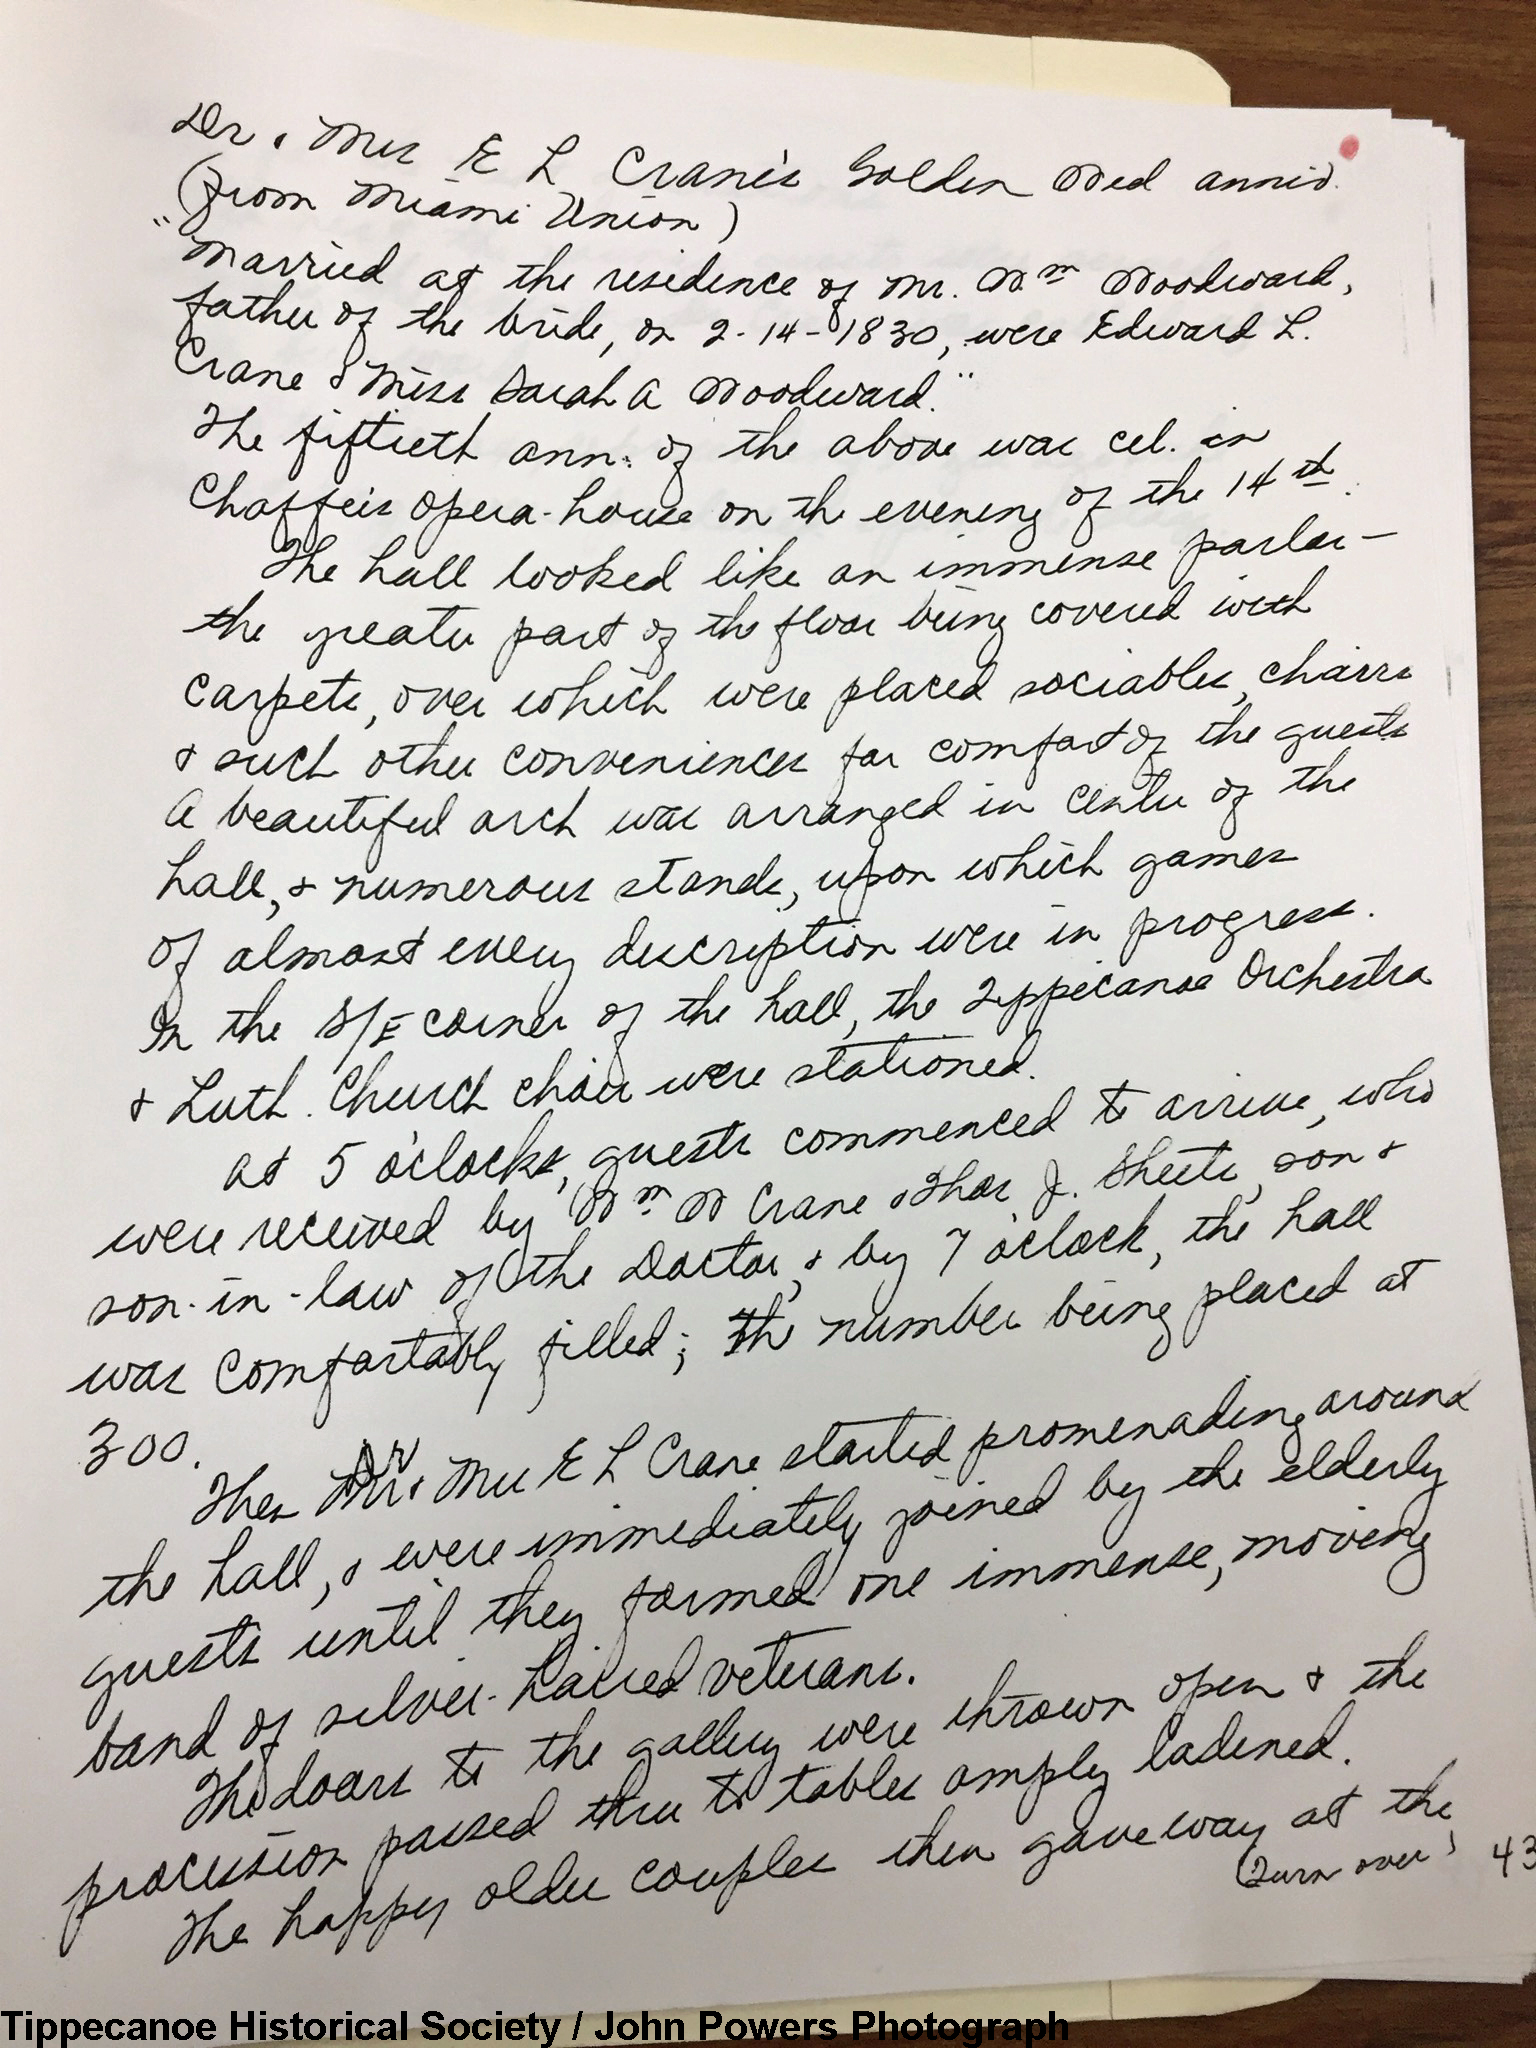 Dr. & Mrs E L Crane's Golden Wed anniv.
(from Miami Union)
"Married at the residence of Mr. Wm Woodward,
father of the bride, on 2-14-1830, were Edward L.
Crane & Miss Sarah A Woodward."
The fiftieth ann. of the above was cel. in
Chaffee's Opera-house on the evening of the 14th.
The hall looked like an immense parlor-
the greater part of the floor being covered with
carpets, over which were placed sociables, chairs
& such other conveniences for comfort of the guests
A beautiful arch was arranged in center of the
hall, & numerous stands, upon which games
of almost every description were in progress.
In the S/E corner of the hall, the Tippecanoe Orchestra
& Luth. Church choir were stationed.
At 5 o'clock, guests commenced to arrive, who
were received by Wm W Crane & Thos J. Sheets, son &
son-in-law of the Doctor, & by 7 o'clock, the hall
was comfortably filled; the number being placed at
300.
Then Dr. & Mrs E L Crane started promenading around
the hall, & were immediately joined by the elderly
guests until they formed one immense, moving
band of silver-haired veterans.
The doors to the gallery were thrown open & the
procession passed thru to tables amply ladened.
The happy older couples then gave way at the
(Turn over) 43
Tippecanoe Historical Society / John Powers Photograph